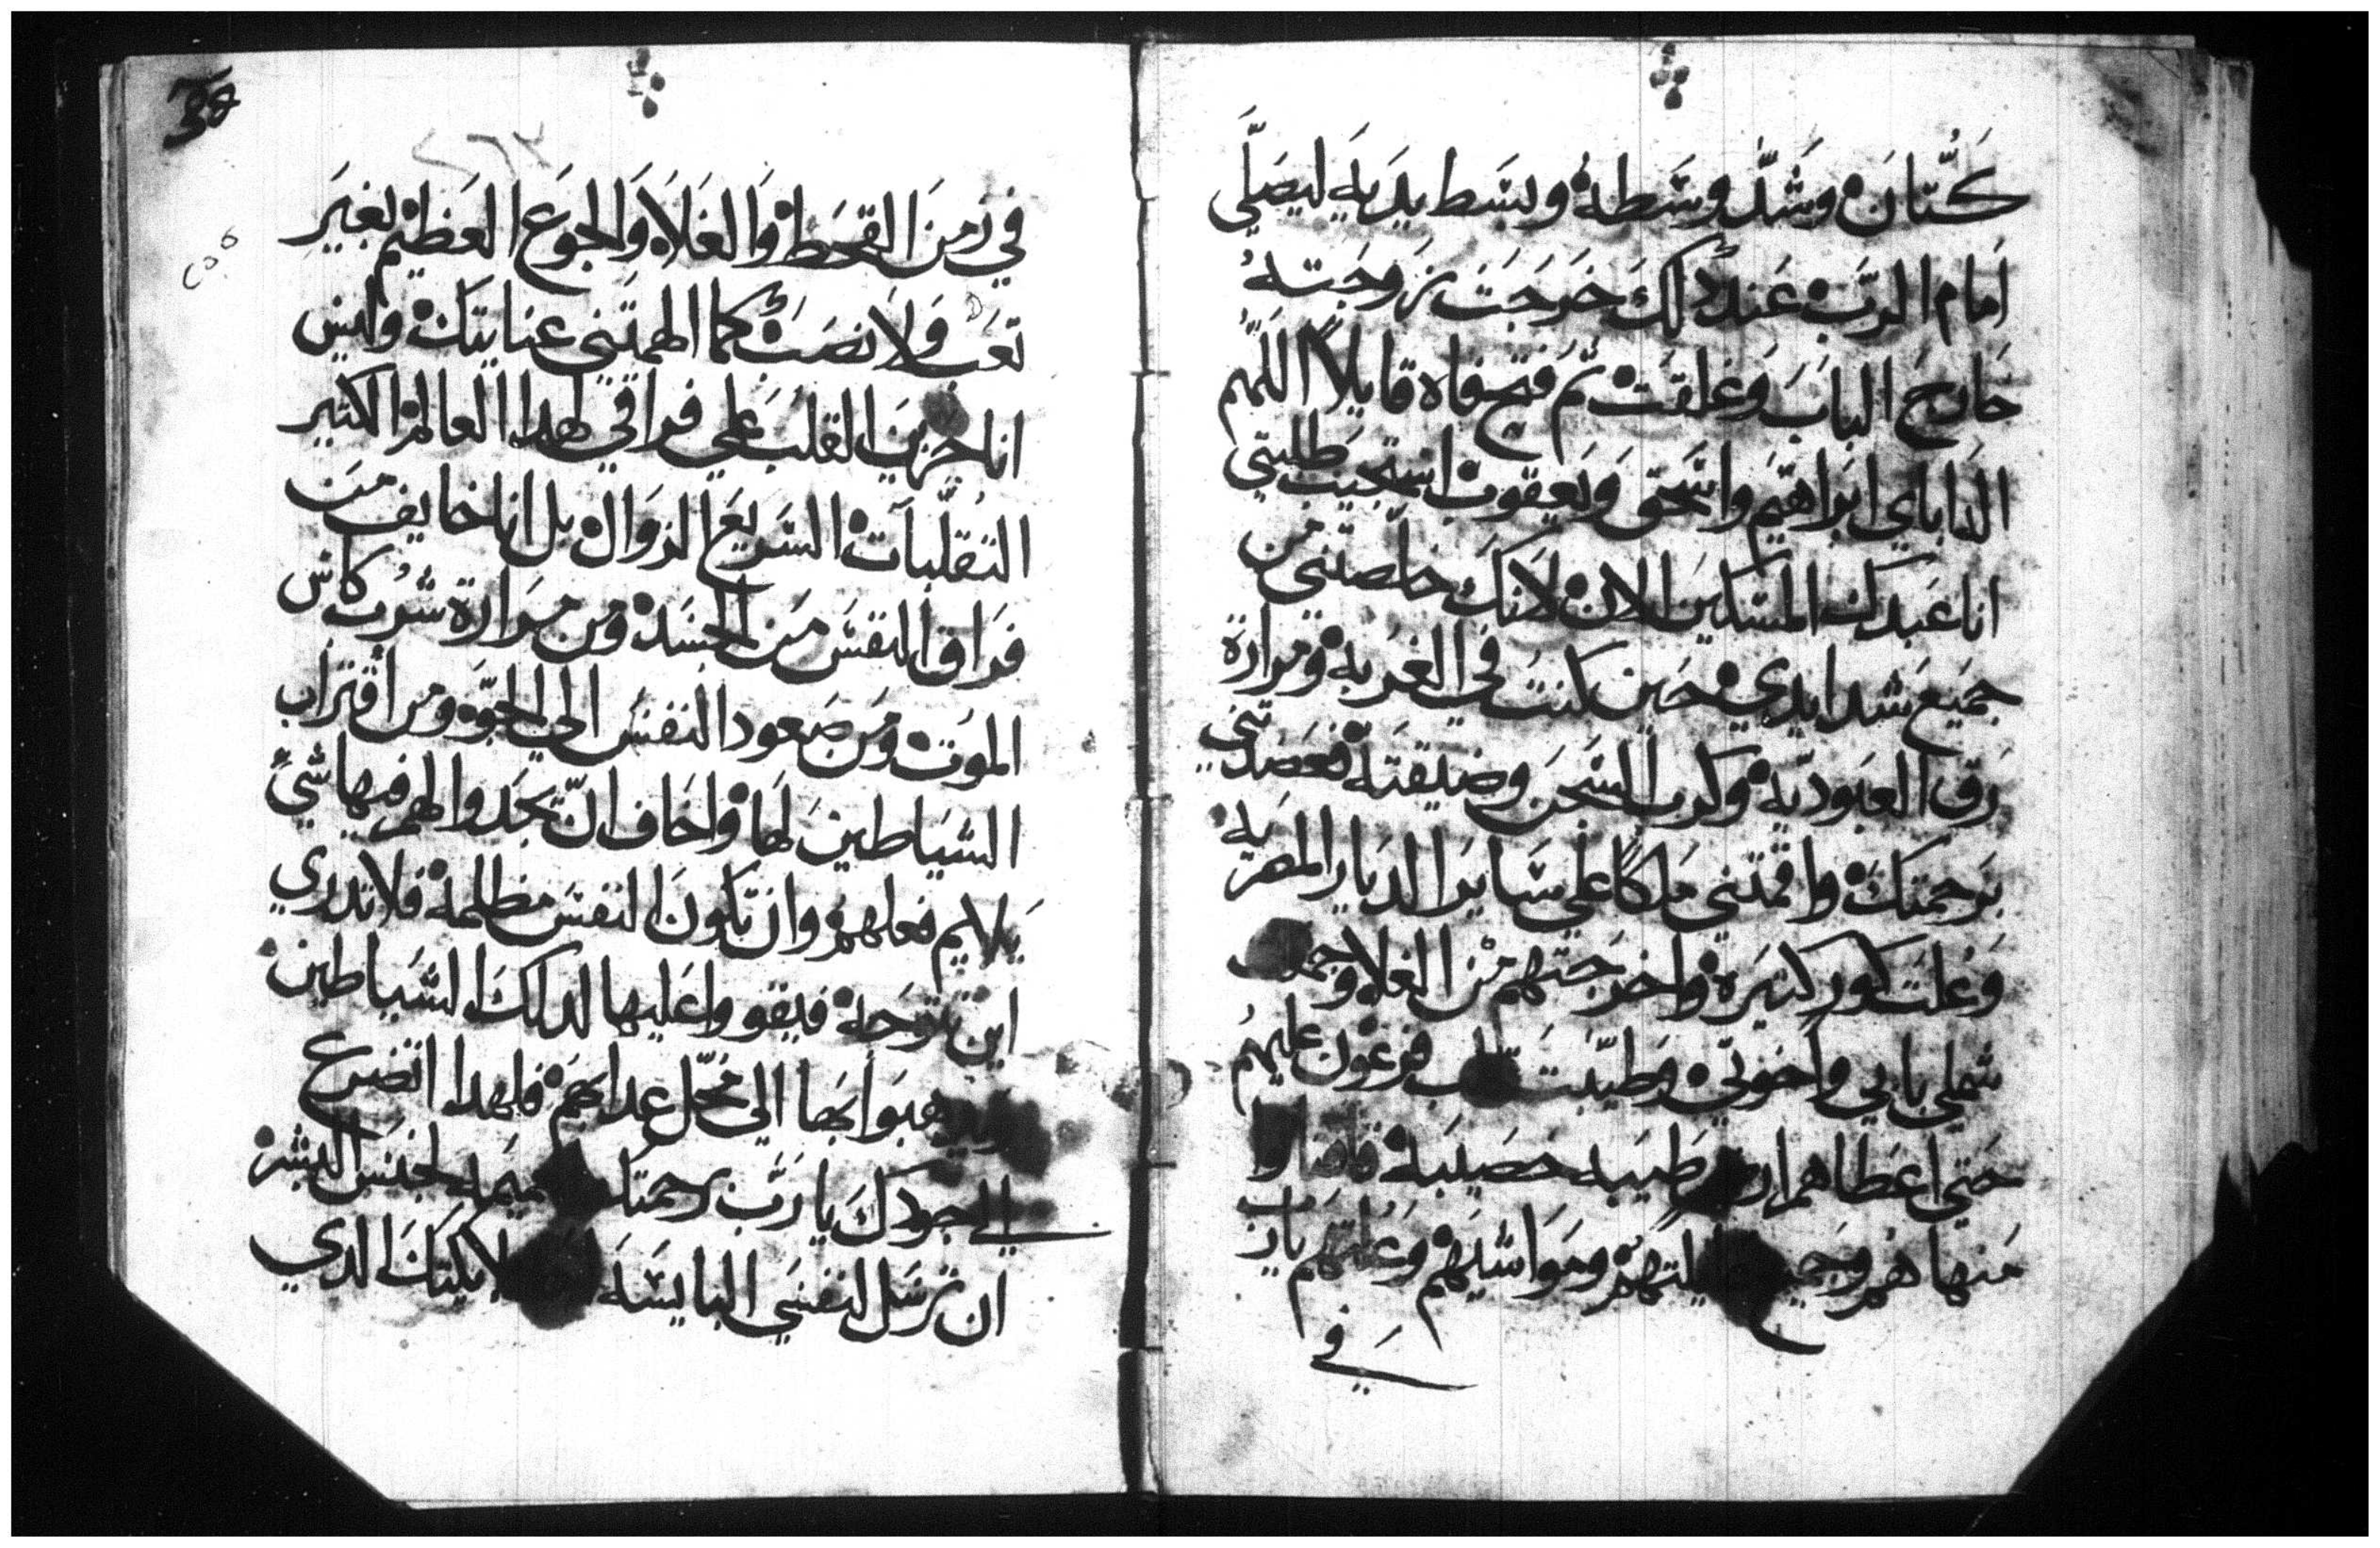 كتان وشد وسطه وبسط يديه ليصلي
امام الرب عند دلك خرجت زوجته
خارج الباب وغلقت ثم فتح فاه قايلا اللهم
اله اباي ابراهيم واسحق ويعقوب استجيب طلبتي
انا عبدك المسكين الان لانك خلصتني من
جميع شدايدي حين كنت في الغربه ومرارة
رق العبوديه وكرب السجن وضيقته فعضدتني
برحمتك واقمتني ملكا على ساير الديار المصريه
وعلت كور كتيره واخرجتهم من الغلا وجمعت
شملي بابي واخوتي وطيبت قلب فرعون عليهم
حتى اعطاهم ارض طيبه خصيبه فامتاروا
منها هم وجميع عيلتهم ومواشيهم وعلتهم يارب
في
38
٢٦٣
في زمن القحط والغلاء والجوع العظيم بغير
تعب ولا نصب كما الهمتني عنايتك وليس
انا حزين القلب على فراقي لهدا العالم الكتير
التقلبات السريع الزوال بل انا خايف من
فراق النفس من الجسد ومن مرارة شرب كاس
الموت ومن صعود النفس الى الجو ومن اقتراب
الشياطين لها واخاف ان تجدوا لهم فيها شي
يلايم فعلهم وان تكون النفس مظلمه فلا تدري
اين توجه فيقووا عليها لدلك الشياطين
هبوا بها الى محل عدابهم فلهدا اتضرع
الى جودك يارب برحمتك لجنس البشر
ان ترسل لنفسي البايسه ملايكتك الدي